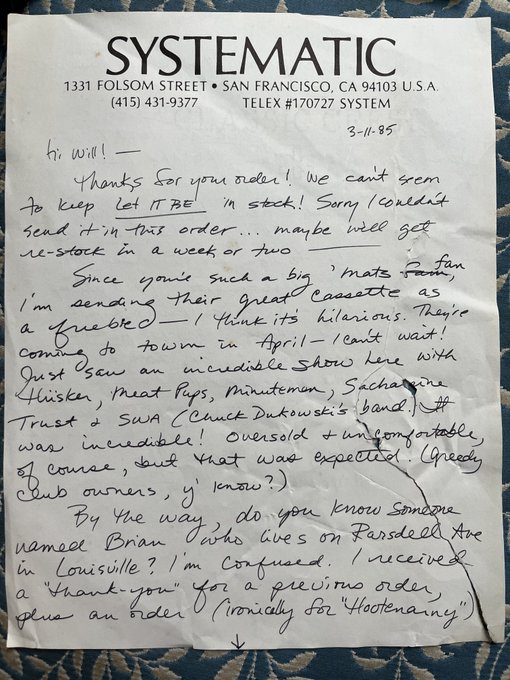 SYSTEMATIC
1331 FOLSOM STREET • SAN FRANCISCO, CA 94103 U.S.A.
(415) 431-9377 TELEX #170727 SYSTEM
3-11-85
Hi Will! —
Thanks for your order! We can't seem
to keep LET IT BE in stock! Sorry I couldn't
send it in this order... maybe we'll get
re-stock in a week or two —
Since you're such a big 'mats fan,
I'm sending their great cassette as
a freebie — I think it's hilarious. They're
coming to town in April — I can't wait!
Just saw an incredible show here with
Hüsker, Meat Pups, Minutemen, Saccharine
Trust & SWA (Chuck Dukowski's band.) It
was incredible! Oversold & uncomfortable,
of course, but that was expected. (Greedy
club owners, y' know?)
By the way, do you know someone
named Brian who lives on Ramsdell Ave
in Louisville? I'm confused. I received
a "thank-you" for a previous order,
plus an order (ironically for "Hootenanny")